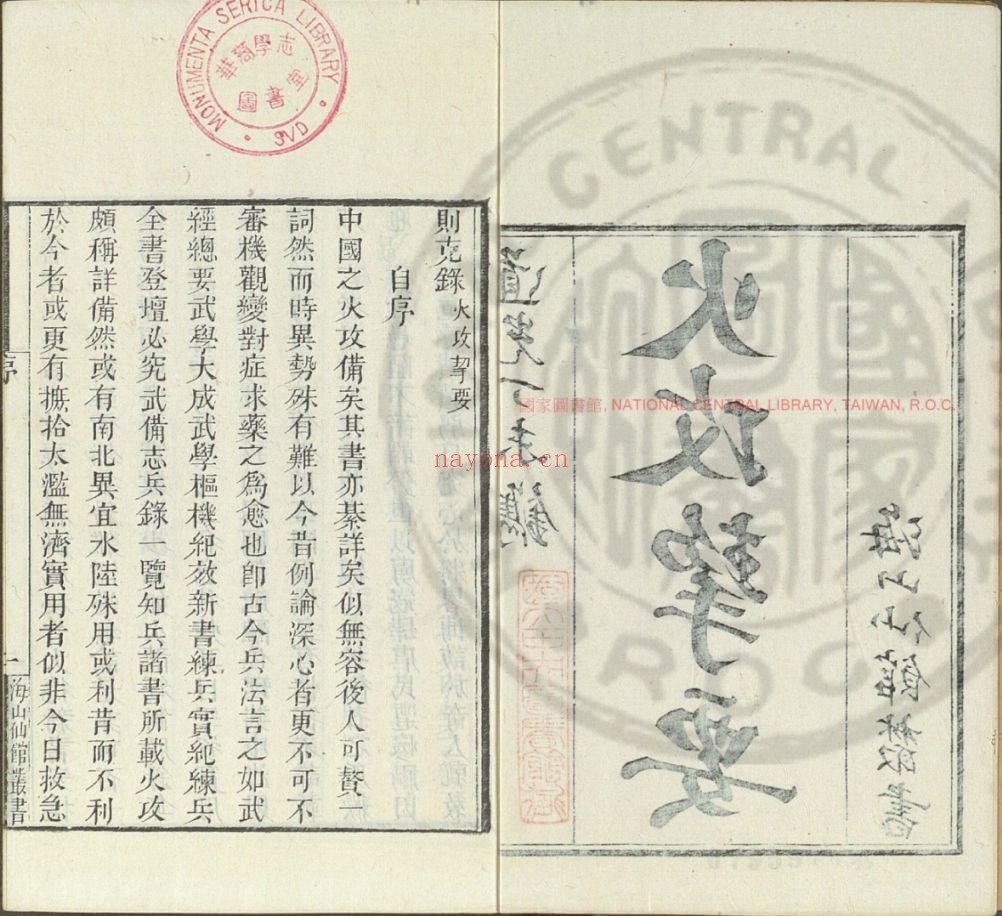 海山仙館叢書
火攻挈要
道光丁未鐫
國家圖書館, NATIONAL CENTRAL LIBRARY, TAIWAN, R.O.C.
CENTRAL
R.O.C
MONUMENTA SERICA LIBRARY · SVD ·
華裔學志
圖書室
nayona.cn
則克錄 火攻挈要
自序
中國之火攻備矣其書亦綦詳矣似無容後人可贅一
詞然而時異勢殊有難以今昔例論深心者更不可不
審機觀變對症求藥之爲愈也卽古今兵法言之如武
經總要武學大成武學樞機紀效新書練兵實紀練兵
全書登壇必究武備志兵錄一覽知兵諸書所載火攻
頗稱詳備然或有南北異宜水陸殊用或利昔而不利
於今者或更有摭拾太濫無濟實用者似非今日救急
序 一 海山仙館叢書